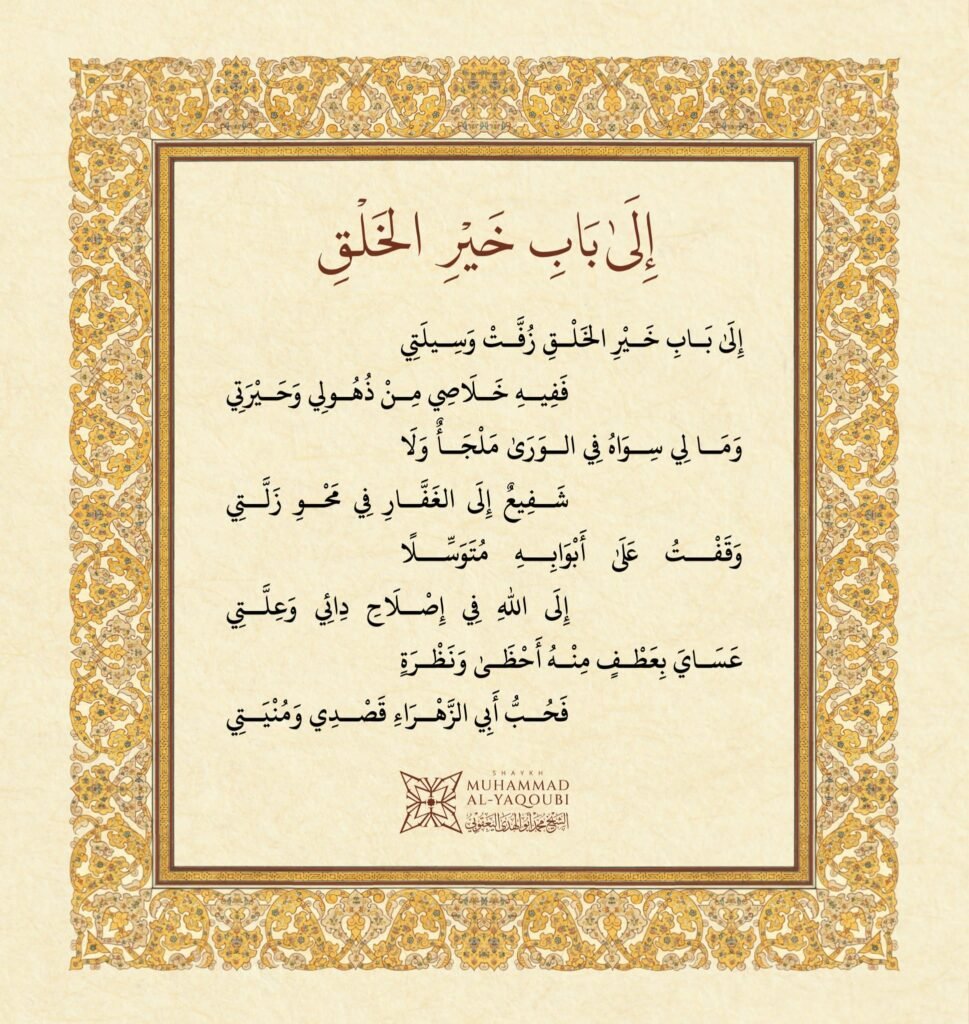 إِلَىٰ بَابِ خَيْرِ الخَلْقِ
إِلَىٰ بَابِ خَيْرِ الخَلْقِ زُفَّتْ وَسِيلَتِي
فَفِيهِ خَلَاصِي مِنْ ذُهُولِي وَحَيْرَتِي
وَمَا لِي سِوَاهُ فِي الوَرَىٰ مَلْجَأٌ وَلَا
شَفِيعٌ إِلَى الغَفَّارِ فِي مَحْوِ زَلَّتِي
وَقَفْتُ عَلَىٰ أَبْوَابِهِ مُتَوَسِّلًا
إِلَى اللهِ فِي إِصْلَاحِ دِائِي وَعِلَّتِي
عَسَايَ بِعَطْفٍ مِنْهُ أَحْظَىٰ وَنَظْرَةٍ
فَحُبُّ أَبِي الزَّهْرَاءِ قَصْدِي وَمُنْيَتِي
SHAYKH
MUHAMMAD
AL-YAQOUBI
الشيخ محمد أبو الهدى اليعقوبي